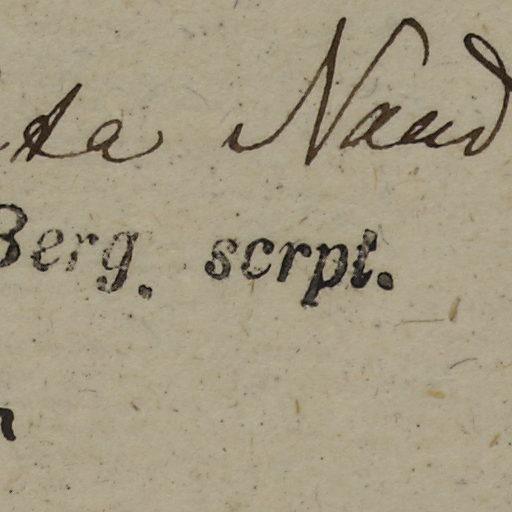 ta Naud
Berg. scrpt.